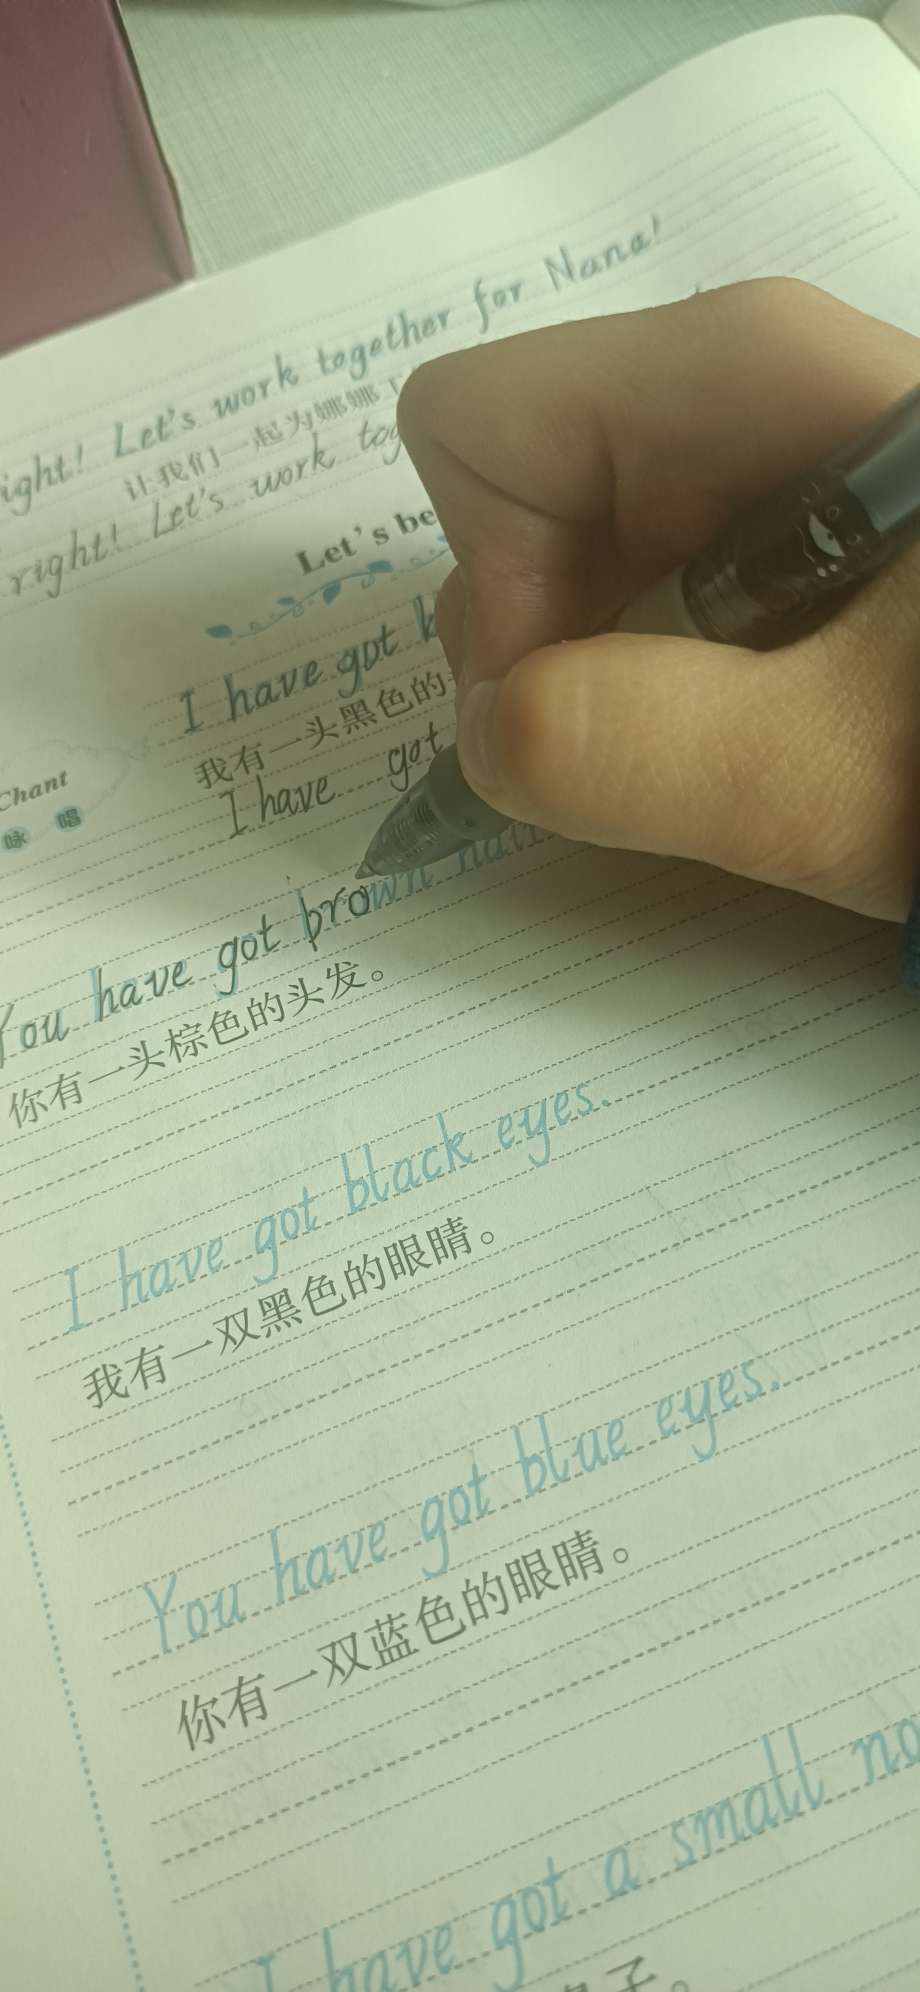 Let's work together for Nana!
让我们一起为娜娜
right! Let's work
Let's be
I have got
我有一头黑色的
I have got
Chant
咏 唱
You have got brown hair
你有一头棕色的头发。
I have got black eyes.
我有一双黑色的眼睛。
You have got blue eyes.
你有一双蓝色的眼睛。
I have got a small
子。